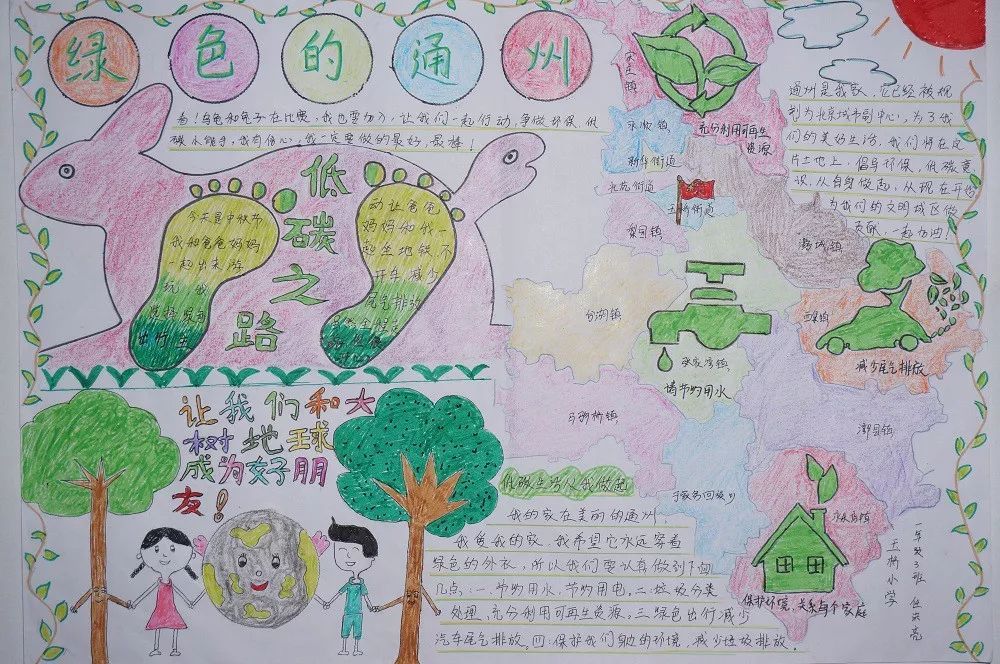 绿色的通州
看!乌龟和兔子在比赛,我也要加入,让我们一起行动,争做环保、低
碳小能手,我有信心,我一定要做的最好、最棒!
低碳之路
今天是中秋节
我和爸爸妈妈
一起出来游
玩,我
出行主
动让爸爸
妈妈和我一
起坐地铁,不
开车,减少
尾气排放
让我们和大
树地球
成为好朋
友!
永顺镇
新华街道
北苑街道
玉桥街道
梨园镇
潞城镇
台湖镇
张家湾镇
请节约用水
马驹桥镇
于家务回族乡
漷县镇
西集镇
减少尾气排放
永乐店镇
保护环境,关系每个家庭
充分利用可再生
资源
通州是我家,它已经被规
划为北京城市副中心,为了我
们的美好生活,我们将在这
片土地上,倡导环保,低碳意
识,从自身做起,从现在开始
为我们的文明城区做
贡献,一起加油!
低碳生活从我做起
我的家在美丽的通州,
我爱我的家,我希望它永远穿着
绿色的外衣,所以我们要认真做到下面
几点:一.节约用水,节约用电,二.垃圾分类
处理、充分利用可再生资源,三.绿色出行减少
汽车尾气排放。四.保护我们身边的环境,减少垃圾排放。
玉桥小学
一年级3班